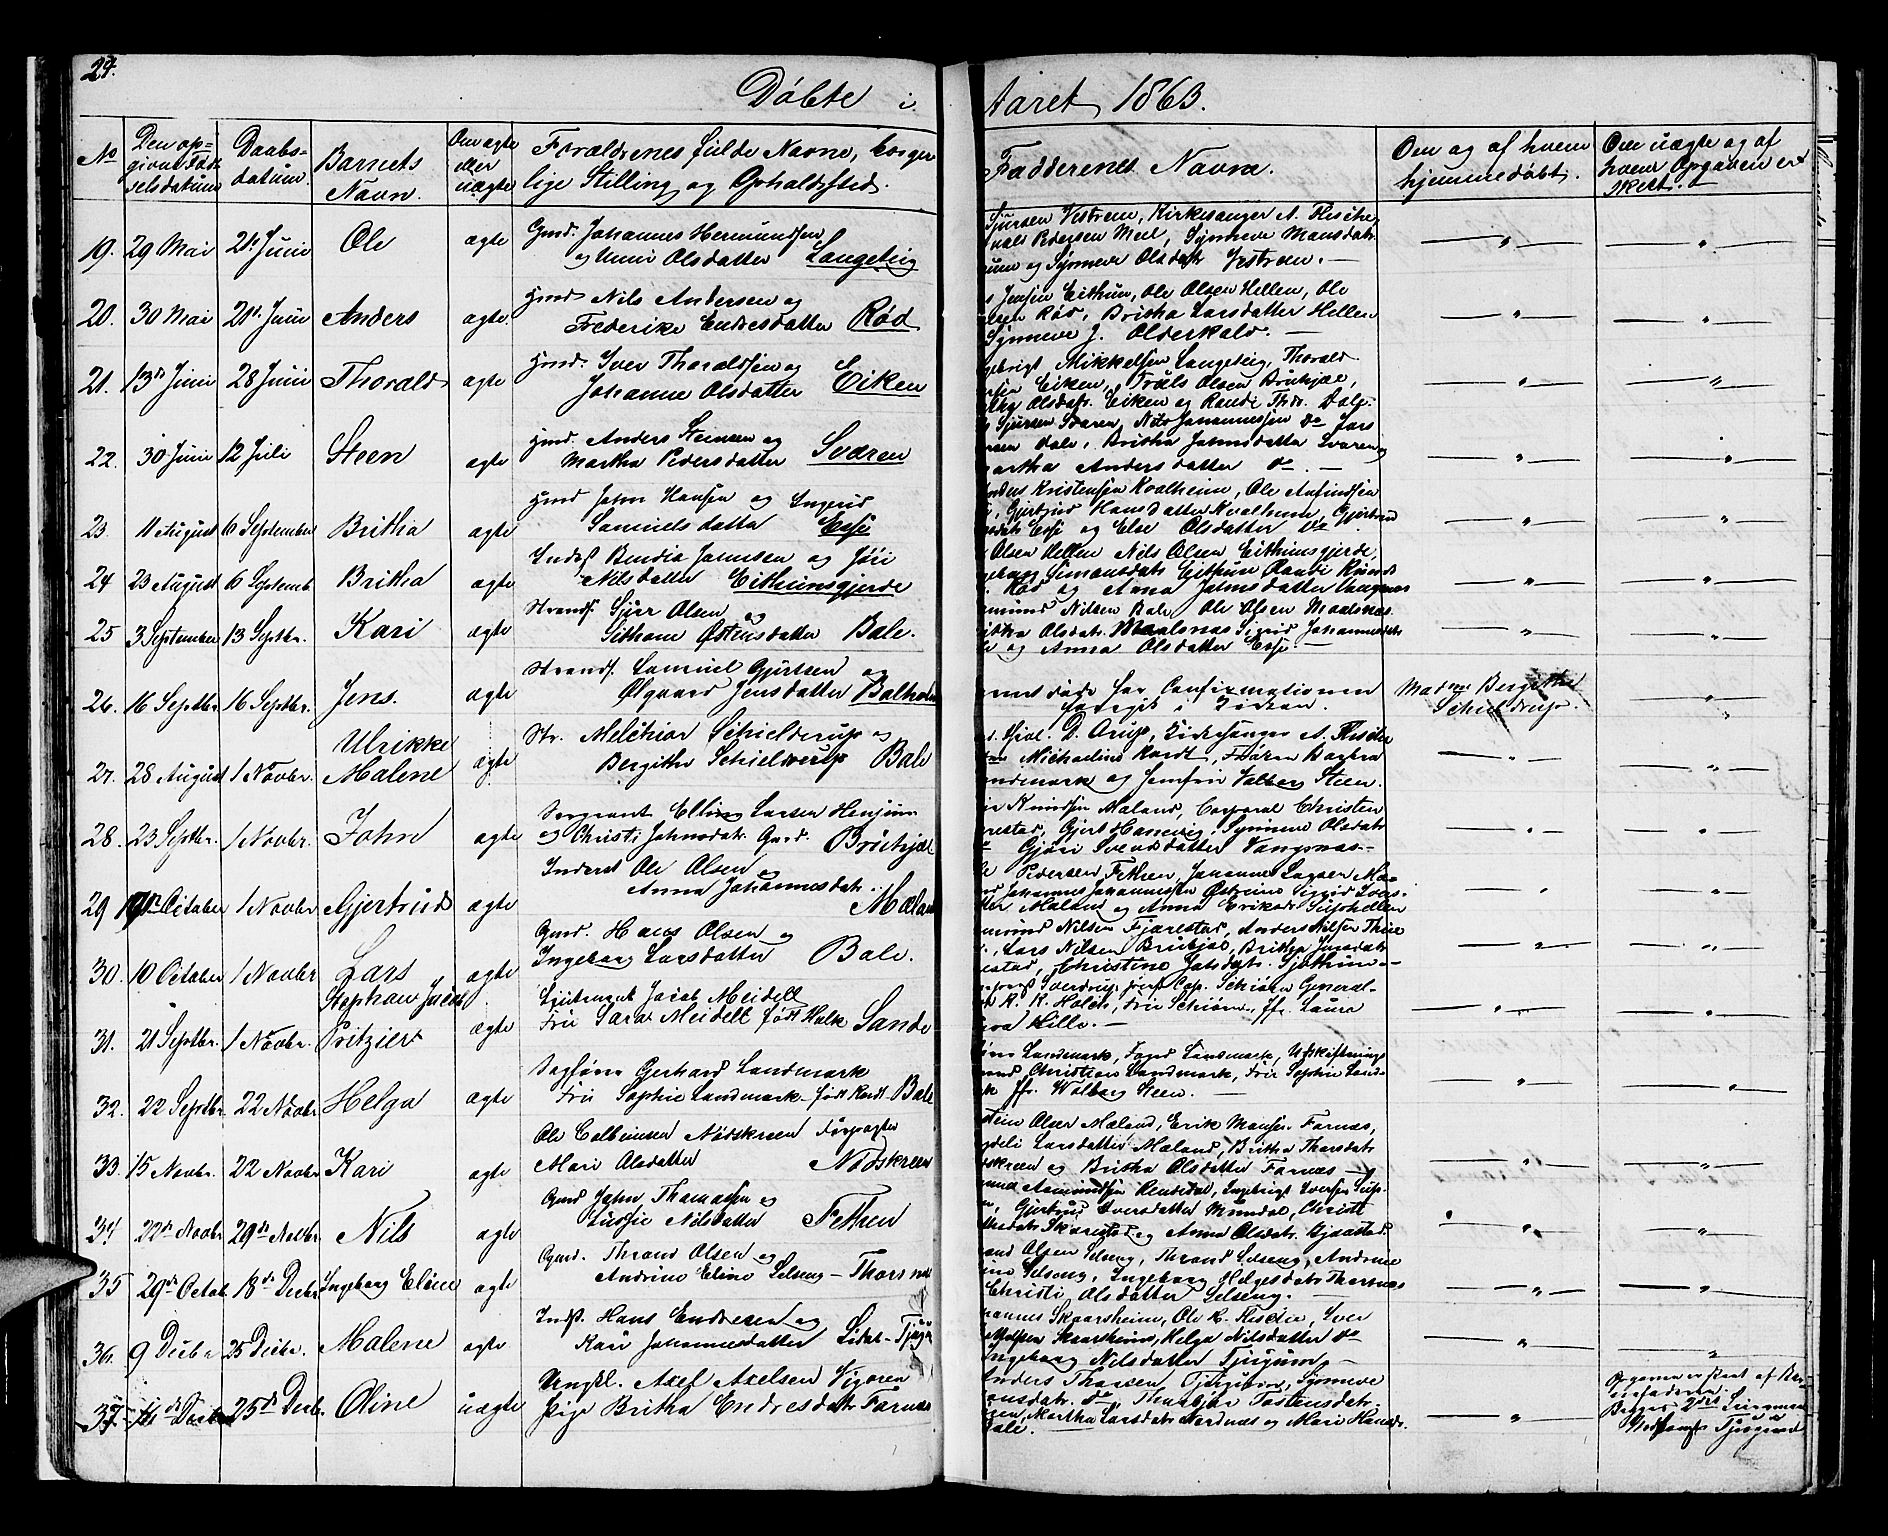 24.
Döbte i Aaret 1863.
No
Den op=
givne Föd=
selsdatum
Daabs-
datum.
Barnets
Navn.
Om ægte
eller
uægte
Forældrenes fulde Navne, borger
lige Stilling og Opholdssted.
Fadderenes Navne.
Om og af hvem
hjemmedöbt.
Om uægte og af
hvem Opgaven er
skeet.
19. 29 Mai 21de Juni Ole ægte
Gmd. Johannes Hermundsen
og Unni Olsdatter Langeteig
Sjursen Vestrem, Kirkesanger A. Fleische
Pedersen Meel, Synneve Monsdatr.
og Synneve Olsdatr Vestrem.
20. 30 Mai 21de Juni Anders ægte.
Gmd. Nils Andersen og
Frederike Endresdatter Röd
Jensen Eithun, Ole Olsen Hellen, Ole
Röd, Britha Larsdatter Hellen
Synneve J. Olderskald.
21. 13de Juni 28 Juni Thorald ægte
Gmd. Iver Thoraldsen og
Johanne Olsdatter Eiken
Mikkelsen Langeteig, Thorald
Eiken, Troels Olsen Bruhjæl,
Olsdatr. Eiken og Randi Thdr. Dale.
22. 30 Juni 12 Juli Steen ægte
Gmd. Anders Steensen og
Martha Pedersdatter Sværen
Sjursen Sværen, Nils Johannessen Do Lars
Dale, Britha Johnsdatter Sværen og
Martha Andersdatter Do.
23. 11 August 6 September Britha ægte
Gmd John Hansen og Ingerid
Samuelsdatter Esse
Kristensen Kvalheim, Ole Anfindsen
Gjertrud Hansdatter Kvalheim, Gjertrud
Esse og Else Olsdatter Do
24 23 August 6 Septemb. Britha ægte
Inderst Bendix Johnsen og Jöri
Nilsdatter Eithunsgjerde
Olsen Hellen Nils Olsen Eithunsgjerde,
Simonsdatr Eithun Randi Knuds
Röd og Anna Johnsdatter
25 3 September 13 Septbr. Kari ægte
Strands. Sjur Olsen og
Östensdatter Bale.
Nilsen Bale, Ole Olsen Maalsnæs
Olsdatr. Maalsnæs Sigrid Johannesdatr
og Anna Olsdatter Esse.
26. 16 Septbr. 16 Septbr. Jens. ægte
Strands. Samuel Gjertsen og
Olgaard Jensdatter Balholm
döde för Confirmationen
foregik i Kirken.
Madme Bergithe
Schieldrup.
27. 28 August 1 Novbr. Ulrikke
Malene ægte
Str. Melchior Schielderup og
Bergithe Schielderup Bale
D. Arup, Kirkesanger A. Fleische
Michaeline Kordt, Fröken Barbra
Landmark og Jomfru Valborg Steen.
28. 23 Septbr. 1 Novbr. John ægte
Sergeant Elling Larsen Henjum
og Christi Johnsdatr. Gmd. Bruhjæl
Knudsen Mæland, Corporal Christen
Gjert Hamre, Synneve Olsdatr
Gjöri Svendsdatter Vangsnæs
29 October 1 Novbr Gjertrud ægte
Inderst Ole Olsen og
Anna Johannesdatr. Mæland
Pedersen Fethen, Johannes Lassen Mæ-
Johannes Johannessen Östreim Sigrid Ivers-
Mæland og Anna Eriksdr Supphellen
30. 10 October 1 Novbr Lars ægte
Gmd. Hans Olsen og
Ingeborg Larsdatter Bale.
Nilsen Fjærestad, Anders Nilsen Thue
Lars Nilsen Bruhjæl, Britha Jonsdatr
Christine Jotsdatr. Sjöthun
31. 21 Septbr. 1 Novbr. Stephan Jacob
Pritzier ægte
Lieutenant Jacob Meidell
Frue Sara Meidell född Holk Sande
Sverdrup, Cap. Schiörn General-
K. K. Holch, Frue Schiörn, Jfr. Laura
Hille.
32. 22 Septbr. 22 Novbr Helga ægte
Sagförer Gerhard Landmark
Frue Sophie Landmark född Kordt Bale
Landmark, Foged Landmark, Udskiftnings
Christian Landmark, Frue Sophie Land-
Jfr. Walborg Steen.
33. 15 Novbr. 22 Novbr. Kari ægte
Ole Colbeinsen Nödskreen Forpagter
Mari Olsdatter Nödskreen
Olsen Mæland, Erik Monsen Farnæs,
Larsdatter Mæland, Britha Thorsdatr
og Britha Olsdatter Farnæs
34 22de Novbr 29de Novbr. Nils ægte
Gmd John Thomassen og
Lussie Nilsdatter Fethen
Aamundsen Rendedal, Ingebrigt Iversen Sup-
Gjertrud Iversdatter Mundal, Christi
Skarestad og Anna Olsdatr. Bjaastad.
35 29de Octob. 18de Decbr Ingeborg Eline ægte
Gmd. Thrond Olsen og
Andrine Eline Selseng - Thorsnæs
Olsen Selseng, Thrond Selseng, Andrine
Selseng, Ingeborg Helgesdatr Thorsnæs
Christi Olsdatter Selseng.
36. 9 Decbr 25 Decbr. Malene ægte
Indst. Hans Endresen og
Kari Johannesdatter Lidal-Tjugum
Skaarsheim, Ole K. Fleischer, Iver
Skaarsheim, Helga Nilsdatter Do
Ingeborg Nilsdatter Tjugum.
37 11de Decbr 25de Decb. Oline uægte
Ungkl. Axel Axelsen Vigören
Pige Britha Endresdatr Farnæs
Anders Thorsen Tjugum, Synneve
Do, Thorbjör Torstensdatr.
Martha Larsdatr Farnæs og Mari Hansdr.
Dale.
Opgaven er skeet af Bar-
nefaderen.